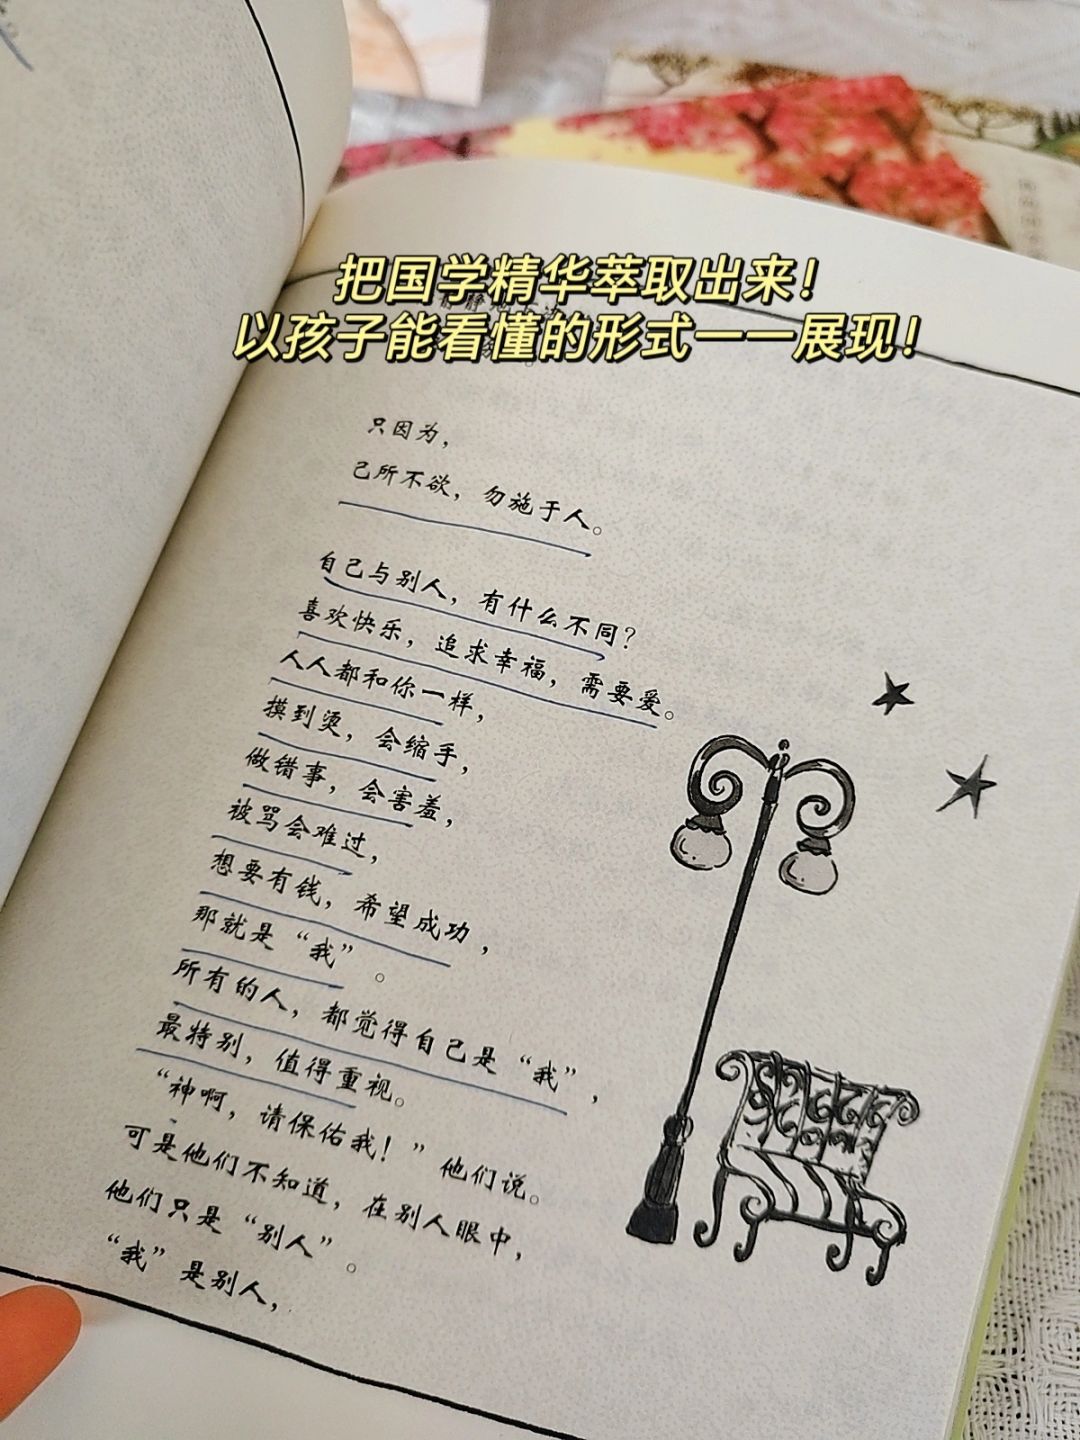 把国学精华萃取出来！
以孩子能看懂的形式一一展现！
只因为，
己所不欲，勿施于人。
自己与别人，有什么不同？
喜欢快乐，追求幸福，需要爱。
人人都和你一样，
摸到烫，会缩手，
做错事，会害羞，
被骂会难过，
想要有钱，希望成功，
那就是“我”。
所有的人，都觉得自己是“我”，
最特别，值得重视。
“神啊，请保佑我！”他们说。
可是他们不知道，在别人眼中，
他们只是“别人”。
“我”是别人，